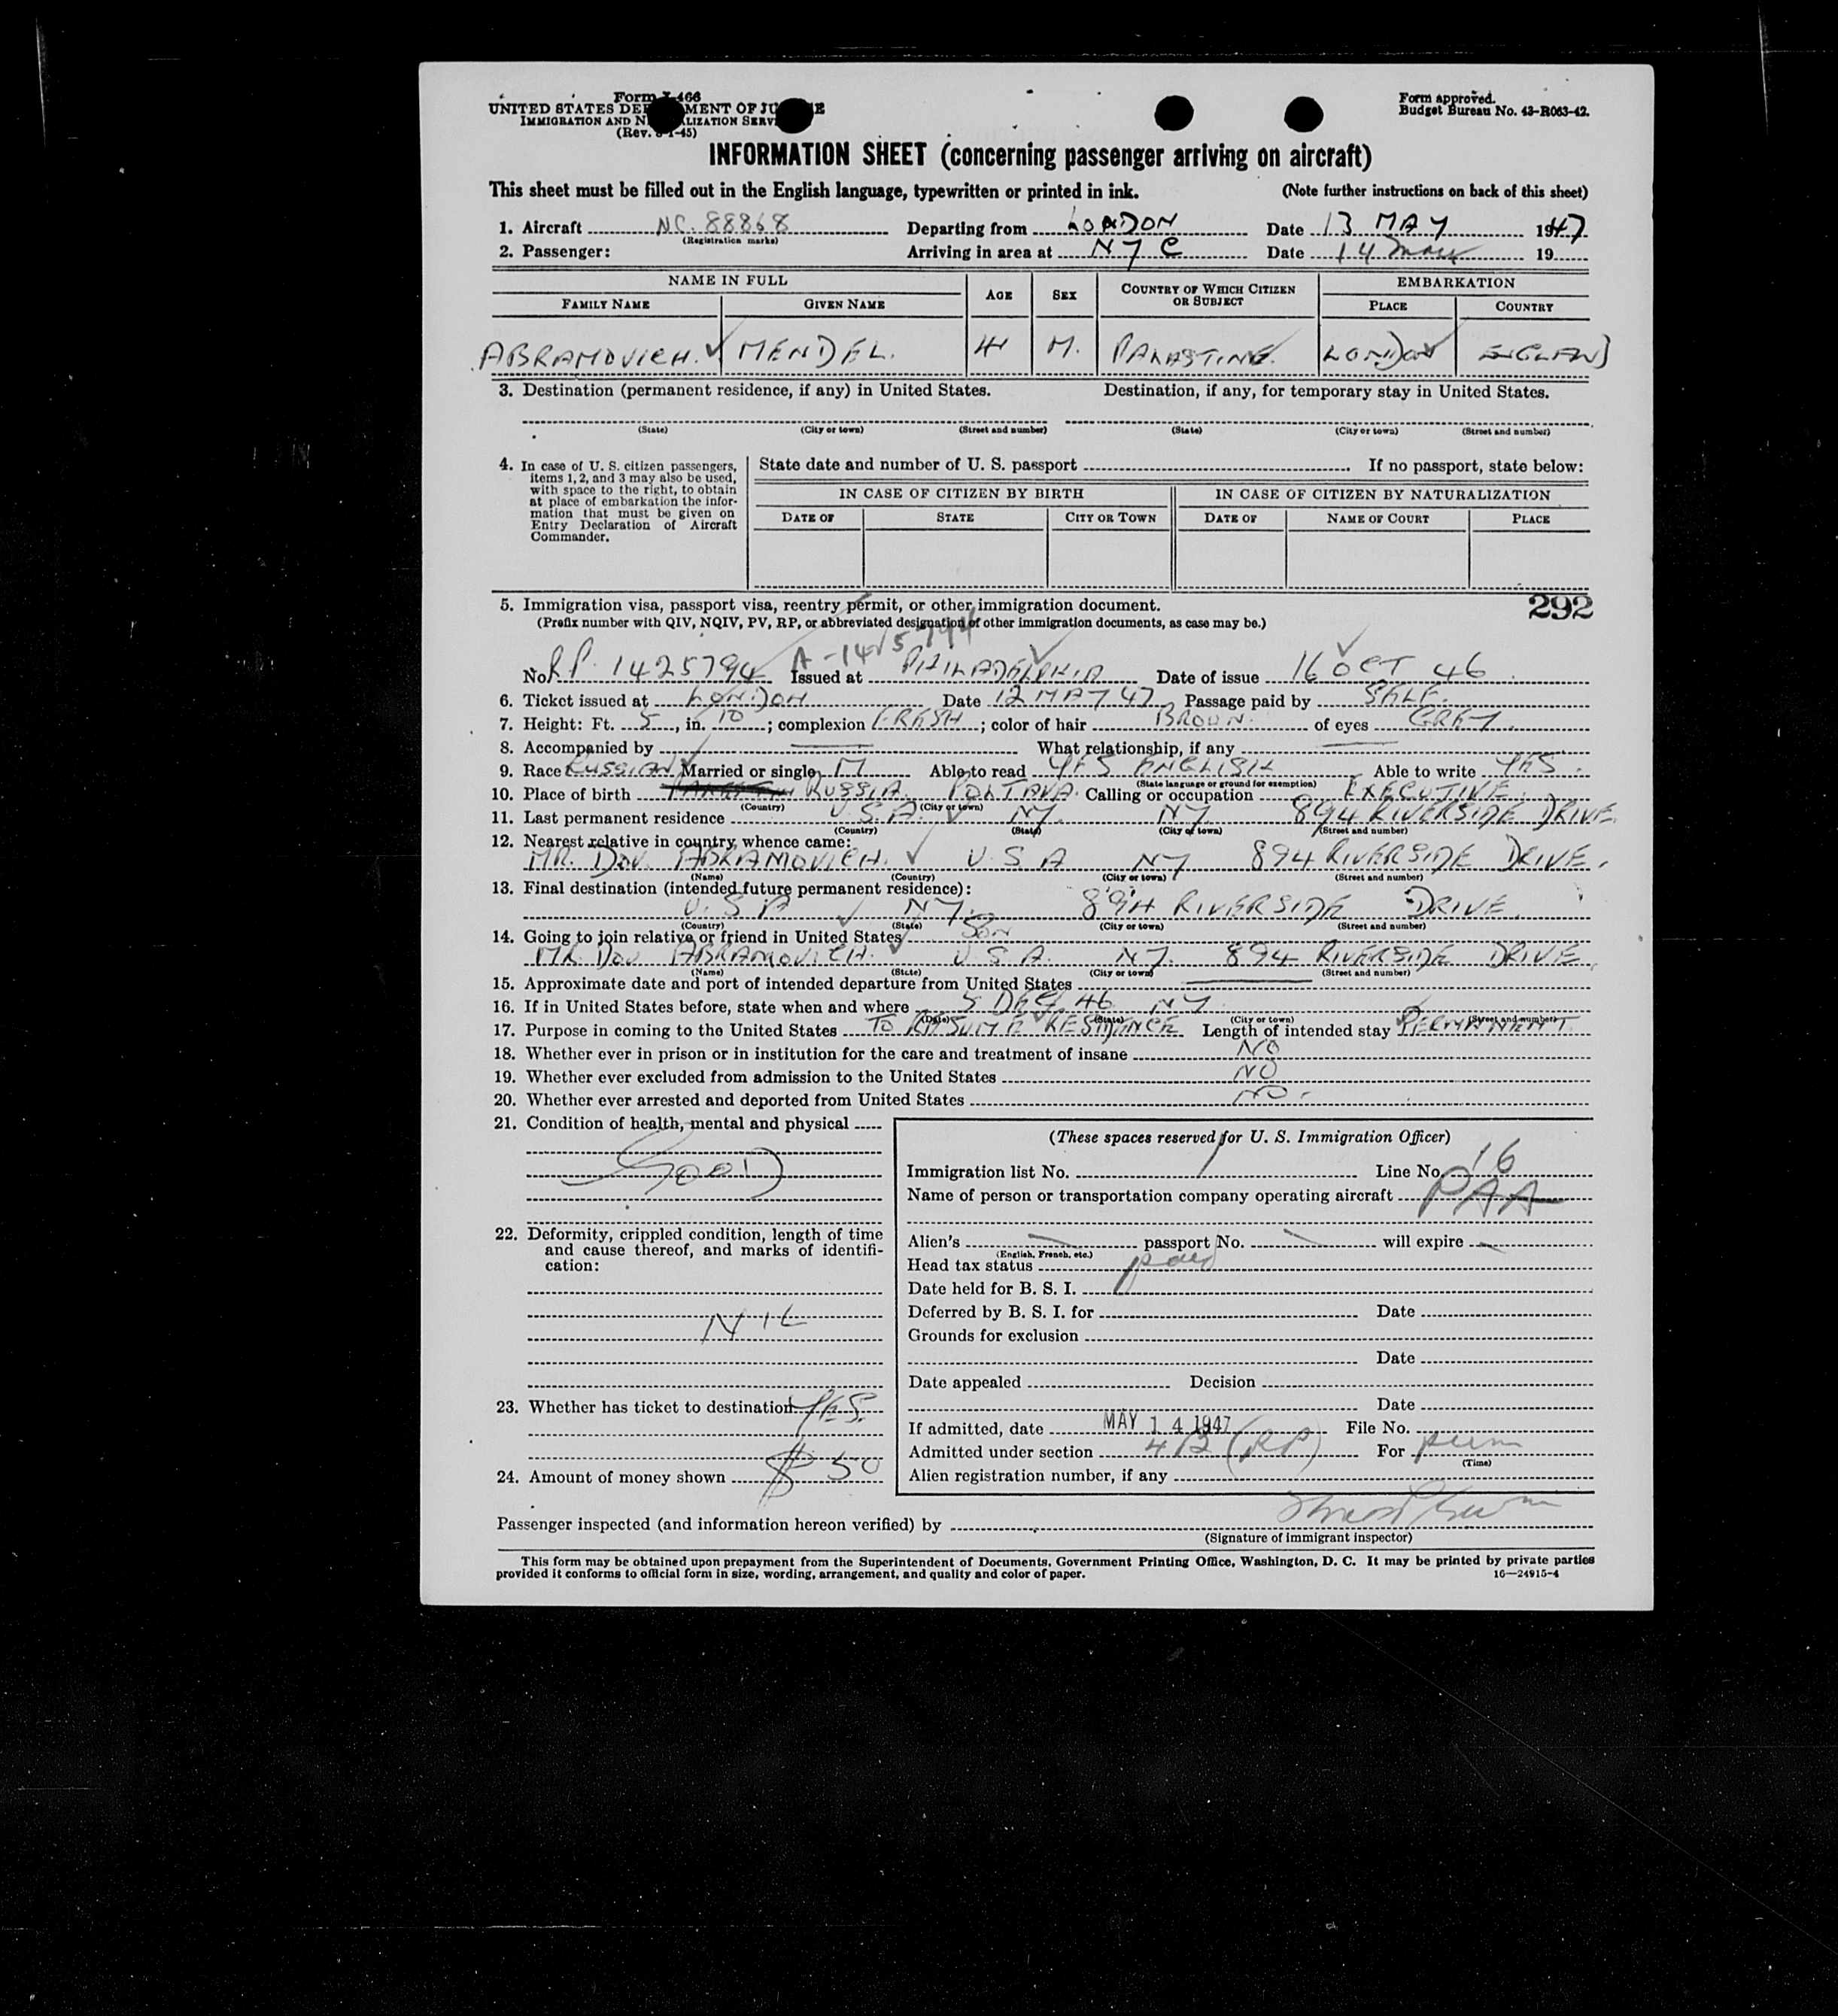 Form I-466
UNITED STATES DEPARTMENT OF JUSTICE
IMMIGRATION AND NATURALIZATION SERVICE
(Rev. 8-1-45)
Form approved.
Budget Bureau No. 43-R063-42.
INFORMATION SHEET (concerning passenger arriving on aircraft)
This sheet must be filled out in the English language, typewritten or printed in ink. (Note further instructions on back of this sheet)
1. Aircraft NC. 88868 Departing from LONDON Date 13 MAY 1947
(Registration marks)
2. Passenger: Arriving in area at NYC Date 14 May 19
NAME IN FULL AGE SEX COUNTRY OF WHICH CITIZEN OR SUBJECT EMBARKATION
FAMILY NAME GIVEN NAME PLACE COUNTRY
ABRAMOVICH. MENDEL. M. PALASTINE. LONDON ENGLAND
3. Destination (permanent residence, if any) in United States. Destination, if any, for temporary stay in United States.
(State) (City or town) (Street and number) (State) (City or town) (Street and number)
4. In case of U. S. citizen passengers, items 1, 2, and 3 may also be used, with space to the right, to obtain at place of embarkation the information that must be given on Entry Declaration of Aircraft Commander.
State date and number of U. S. passport If no passport, state below:
IN CASE OF CITIZEN BY BIRTH IN CASE OF CITIZEN BY NATURALIZATION
DATE OF STATE CITY OR TOWN DATE OF NAME OF COURT PLACE
5. Immigration visa, passport visa, reentry permit, or other immigration document. 292
(Prefix number with QIV, NQIV, PV, RP, or abbreviated designation of other immigration documents, as case may be.)
A-1425794
No. RP. 1425794 Issued at PHILADELPHIA Date of issue 16 OCT 46
6. Ticket issued at LONDON Date 12 MAY 47 Passage paid by SELF.
7. Height: Ft. 5, in. 10; complexion FRESH; color of hair BROWN. of eyes GREY.
8. Accompanied by What relationship, if any
9. Race RUSSIAN Married or single M Able to read YES ENGLISH Able to write YES.
(State language or ground for exemption)
10. Place of birth RUSSIA. POLTAVA. Calling or occupation EXECUTIVE.
(Country) (City or town)
11. Last permanent residence U.S.A. NY. NY 894 RIVERSIDE DRIVE
(Country) (State) (City or town) (Street and number)
12. Nearest relative in country whence came:
MR. DOV. ABRAMOVICH. U S A NY 894 RIVERSIDE DRIVE.
(Name) (Country) (City or town) (Street and number)
13. Final destination (intended future permanent residence):
U. S A NY. 894 RIVERSIDE DRIVE.
(Country) (State) (City or town) (Street and number)
14. Going to join relative or friend in United States Son
MR. DOV ABRAMOVICH. U S A. NY. 894 RIVERSIDE DRIVE.
(Name) (State) (City or town) (Street and number)
15. Approximate date and port of intended departure from United States
16. If in United States before, state when and where 5 DEC 46 NY.
(Date) (State) (City or town) (Street and number)
17. Purpose in coming to the United States TO RESUME RESIDENCE Length of intended stay PERMANENT
18. Whether ever in prison or in institution for the care and treatment of insane NO
19. Whether ever excluded from admission to the United States NO
20. Whether ever arrested and deported from United States NO.
21. Condition of health, mental and physical
GOOD
22. Deformity, crippled condition, length of time and cause thereof, and marks of identification:
NIL
23. Whether has ticket to destination YES.
24. Amount of money shown $ 50
(These spaces reserved for U. S. Immigration Officer)
Immigration list No. Line No. 16
Name of person or transportation company operating aircraft PAA
Alien's passport No. will expire
(English, French, etc.)
Head tax status paid
Date held for B. S. I.
Deferred by B. S. I. for Date
Grounds for exclusion
Date
Date appealed Decision
Date
If admitted, date MAY 14 1947 File No.
Admitted under section 4B (RP) For perm
(Time)
Alien registration number, if any
Passenger inspected (and information hereon verified) by
(Signature of immigrant inspector)
This form may be obtained upon prepayment from the Superintendent of Documents, Government Printing Office, Washington, D. C. It may be printed by private parties
provided it conforms to official form in size, wording, arrangement, and quality and color of paper. 16—24915-4